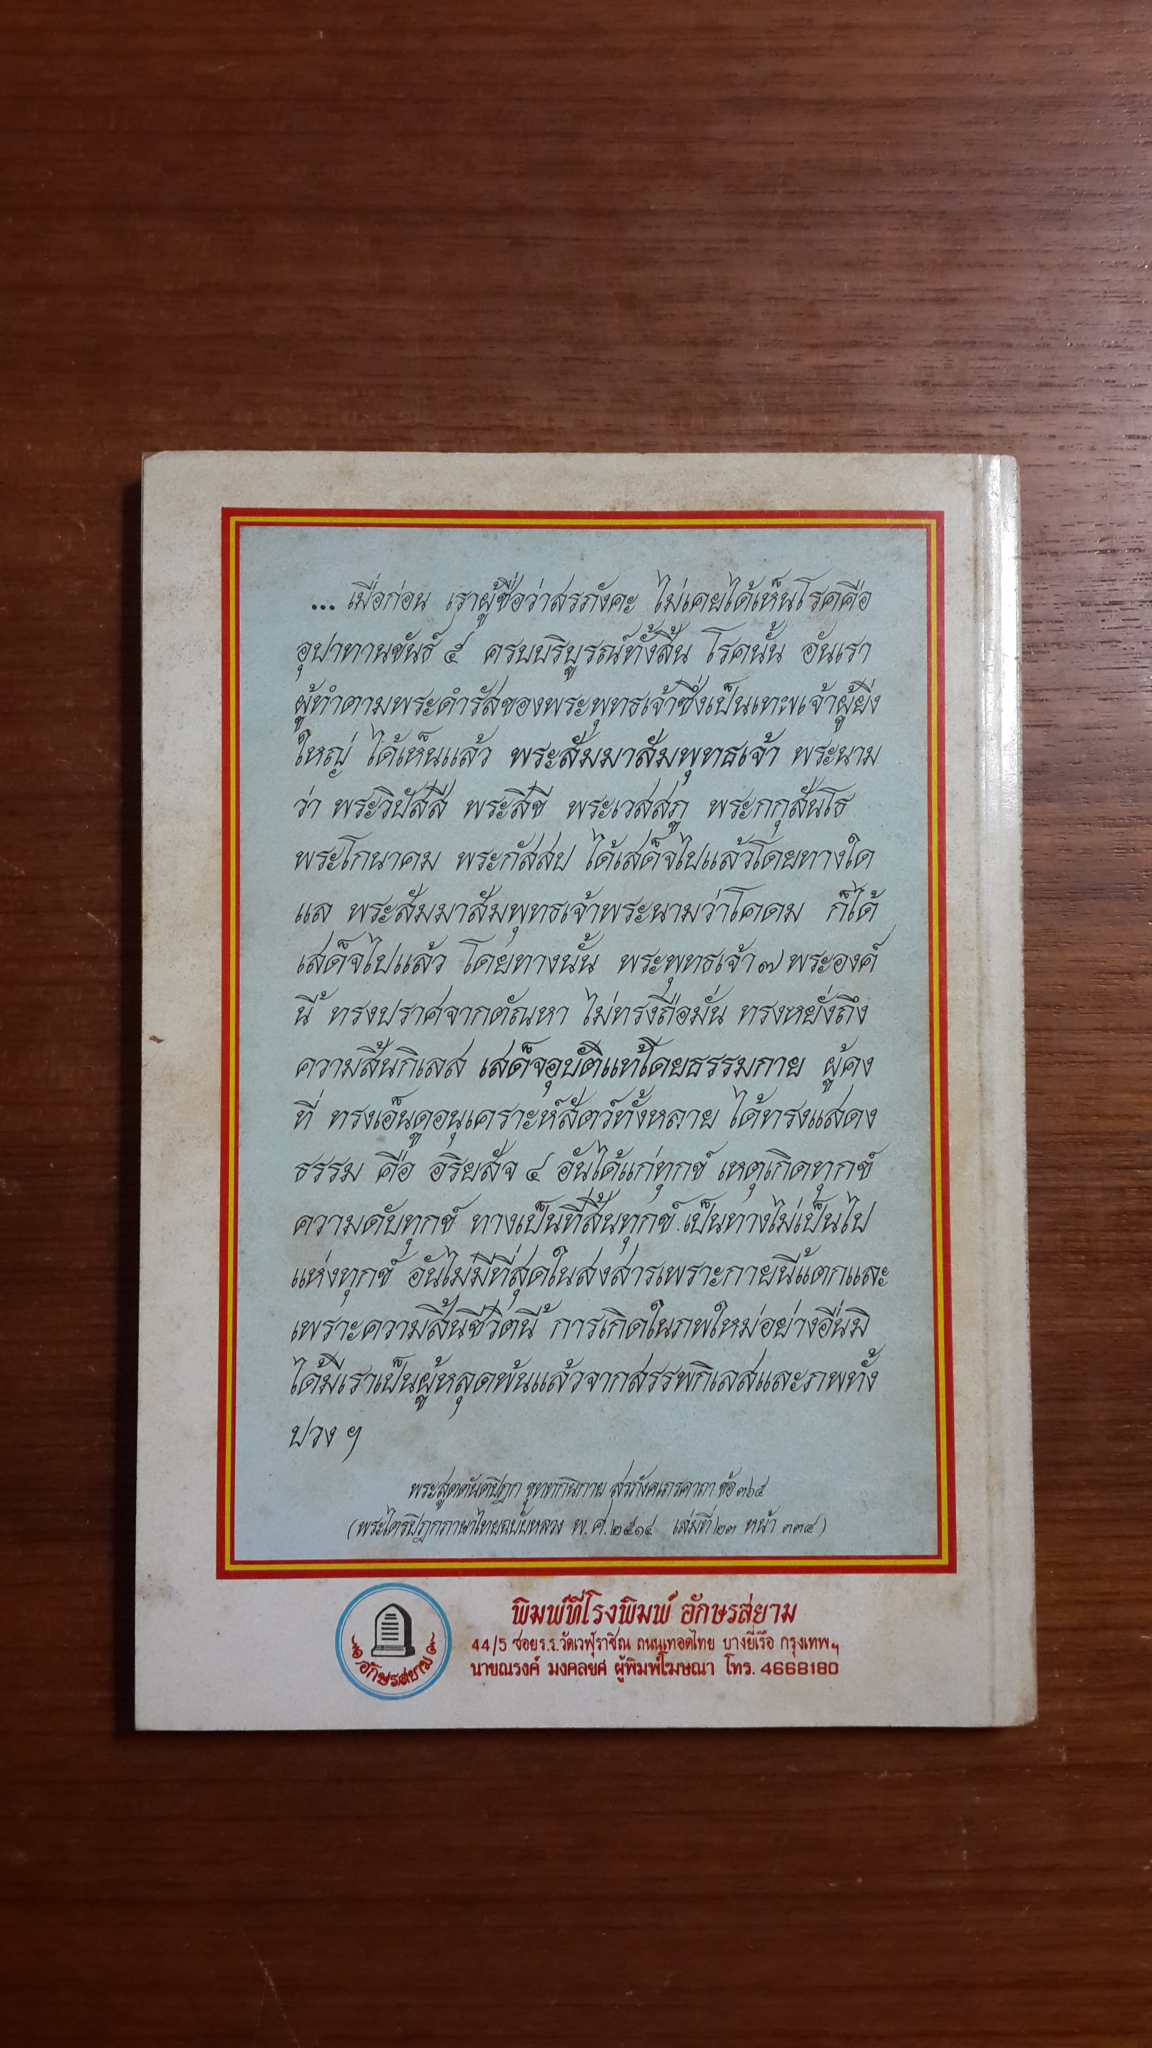 ... เมื่อก่อน เราผู้ชื่อว่าสรภังคะ ไม่เคยได้เห็นโรคคือ
อุปาทานขันธ์ ๕ ครบบริบูรณ์ทั้งสิ้น โรคนั้น อันเรา
ผู้ทำตามพระดำรัสของพระพุทธเจ้าซึ่งเป็นเทพเจ้าผู้ยิ่ง
ใหญ่ ได้เห็นแล้ว พระสัมมาสัมพุทธเจ้า พระนาม
ว่า พระวิปัสสี พระสิขี พระเวสสภู พระกกุสันโธ
พระโกนาคม พระกัสสป ได้เสด็จไปแล้วโดยทางใด
แล พระสัมมาสัมพุทธเจ้าพระนามว่าโคดม ก็ได้
เสด็จไปแล้ว โดยทางนั้น พระพุทธเจ้า ๗ พระองค์
นี้ ทรงปราศจากตัณหา ไม่ทรงถือมั่น ทรงหยั่งถึง
ความสิ้นกิเลส เสด็จอุบัติแท้โดยธรรมกาย ผู้คง
ที่ ทรงเอ็นดูอนุเคราะห์สัตว์ทั้งหลาย ได้ทรงแสดง
ธรรม คือ อริยสัจ ๔ อันได้แก่ทุกข์ เหตุเกิดทุกข์
ความดับทุกข์ ทางเป็นที่สิ้นทุกข์ เป็นทางไม่เป็นไป
แห่งทุกข์ อันไม่มีที่สุดในสงสารเพราะกายนี้แตกและ
เพราะความสิ้นชีวิตนี้ การเกิดในภพใหม่อย่างอื่นมิ
ได้มีเราเป็นผู้หลุดพ้นแล้วจากสรรพกิเลสและภพทั้ง
ปวง ฯ
พระสุตตันตปิฎก ขุททกนิกาย สรภังคเถรคาถา ข้อ ๓๖๕
(พระไตรปิฎกภาษาไทยฉบับหลวง พ.ศ.๒๕๑๔ เล่มที่ ๒๓ หน้า ๓๓๔)
พิมพ์ที่โรงพิมพ์ อักษรสยาม
44/5 ซอยร.ร.วัดเวฬุราชิณ ถนนเทอดไทย บางยี่เรือ กรุงเทพฯ
นายณรงค์ มงคลยศ ผู้พิมพ์โฆษณา โทร. 4668180
อักษรสยาม